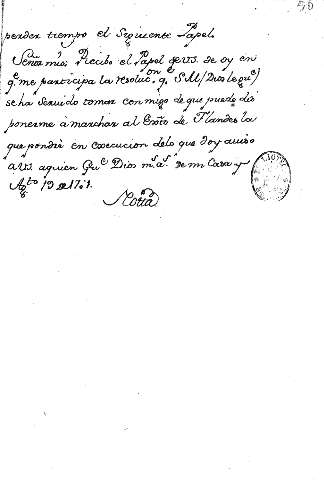 50
perder tiempo el Siguiente Papel.
Señor mio: Recibo el Papel de VS. de oy en
q.e me participa la resoluc.on q.e SM (Dios le gu.e)
se ha servido tomar conmigo de que puedo dis
ponerme à marchar al Exto de Flandes la
que pondrè en execucion de lo que doy aviso
a VS. aquien Gu.e Dios m.s a.s de mi Casa y
Ag.to 19 de 1701.